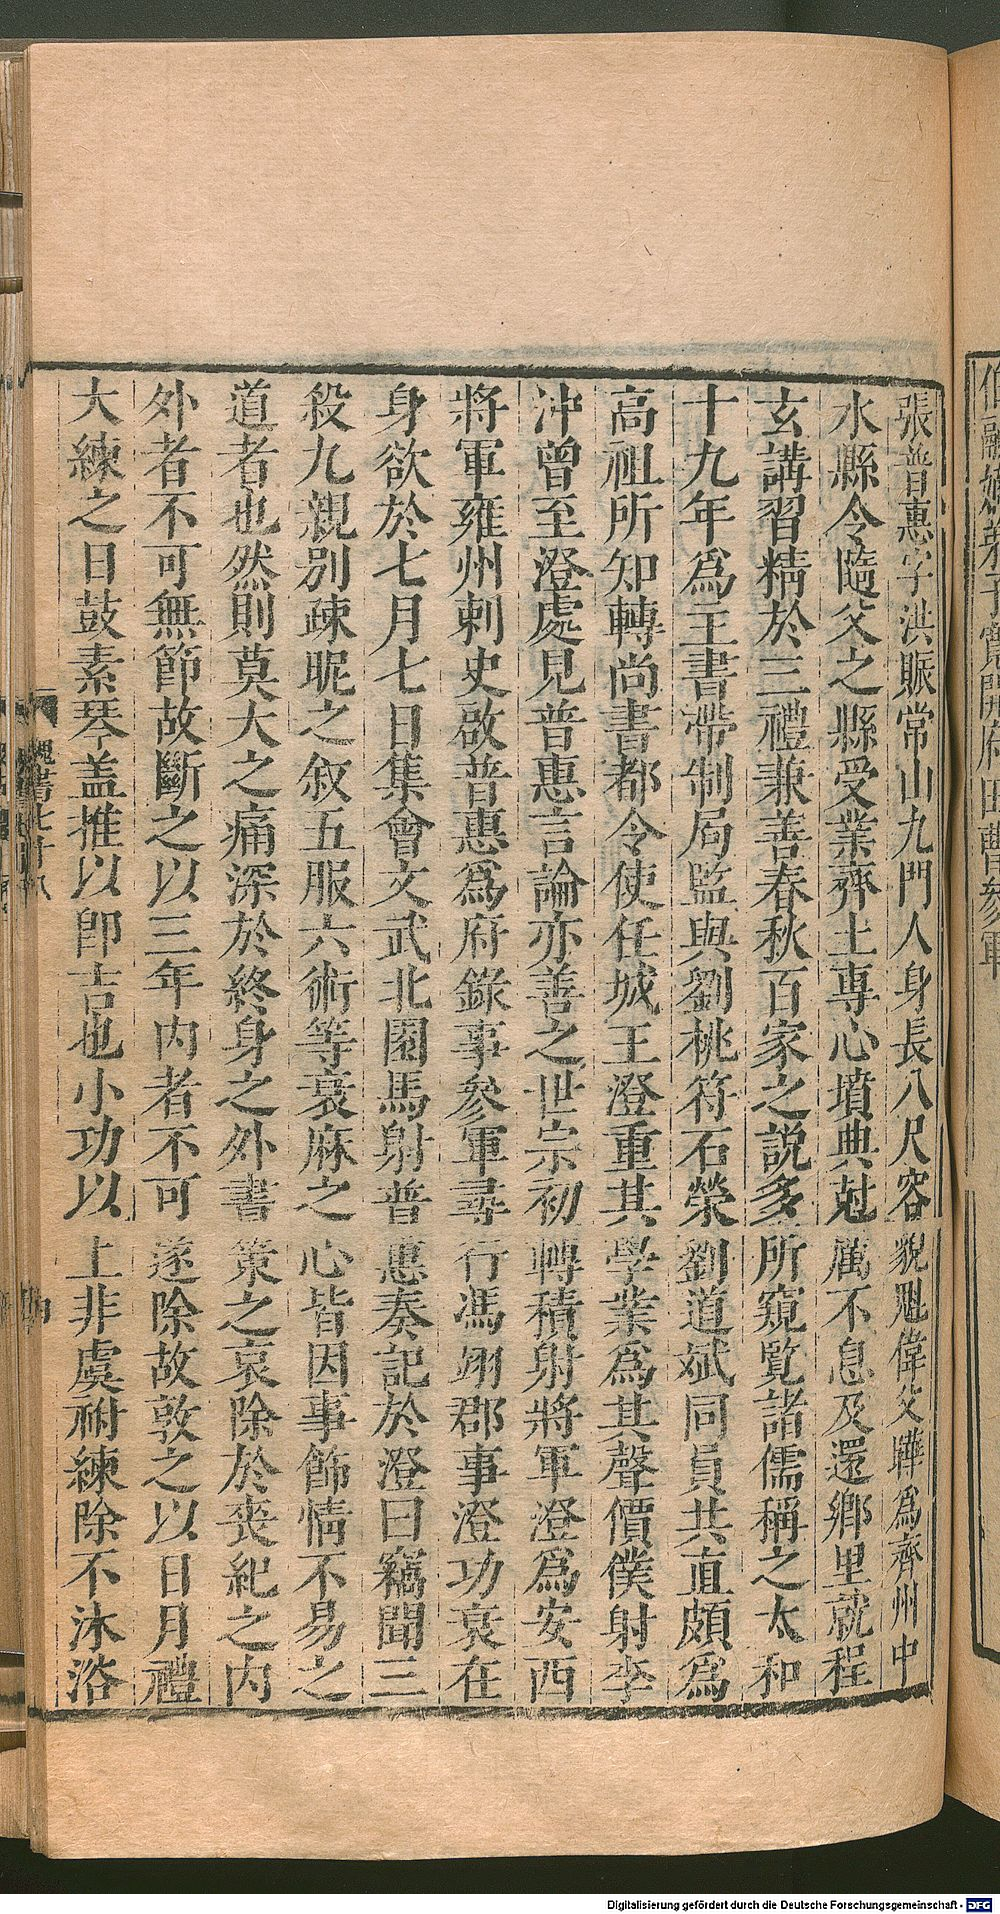 張普惠字洪賑常山九門人身長八尺容貌魁偉父曄爲齊州中
水縣令隨父之縣受業齊土專心墳典尅厲不息及還鄉里就程
玄講習精於三禮兼善春秋百家之說多所窺覽諸儒稱之太和
十九年爲主書帶制局監與劉桃符石榮劉道斌同員共直頗爲
高祖所知轉尚書都令使任城王澄重其學業爲其聲價僕射李
沖曾至澄處見普惠言論亦善之世宗初轉積射將軍澄爲安西
將軍雍州刺史啟普惠爲府錄事參軍尋行馮翊郡事澄功衰在
身欲於七月七日集會文武北園馬射普惠奏記於澄曰竊聞三
殺九親別疎昵之叙五服六術等衰麻之心皆因事飾情不易之
道者也然則莫大之痛深於終身之外書策之哀除於喪紀之内
外者不可無節故斷之以三年内者不可遂除故敦之以日月禮
大練之日鼓素琴盖推以卽吉也小功以上非虞祔練除不沐浴
魏書七十八
Digitalisierung gefördert durch die Deutsche Forschungsgemeinschaft - DFG